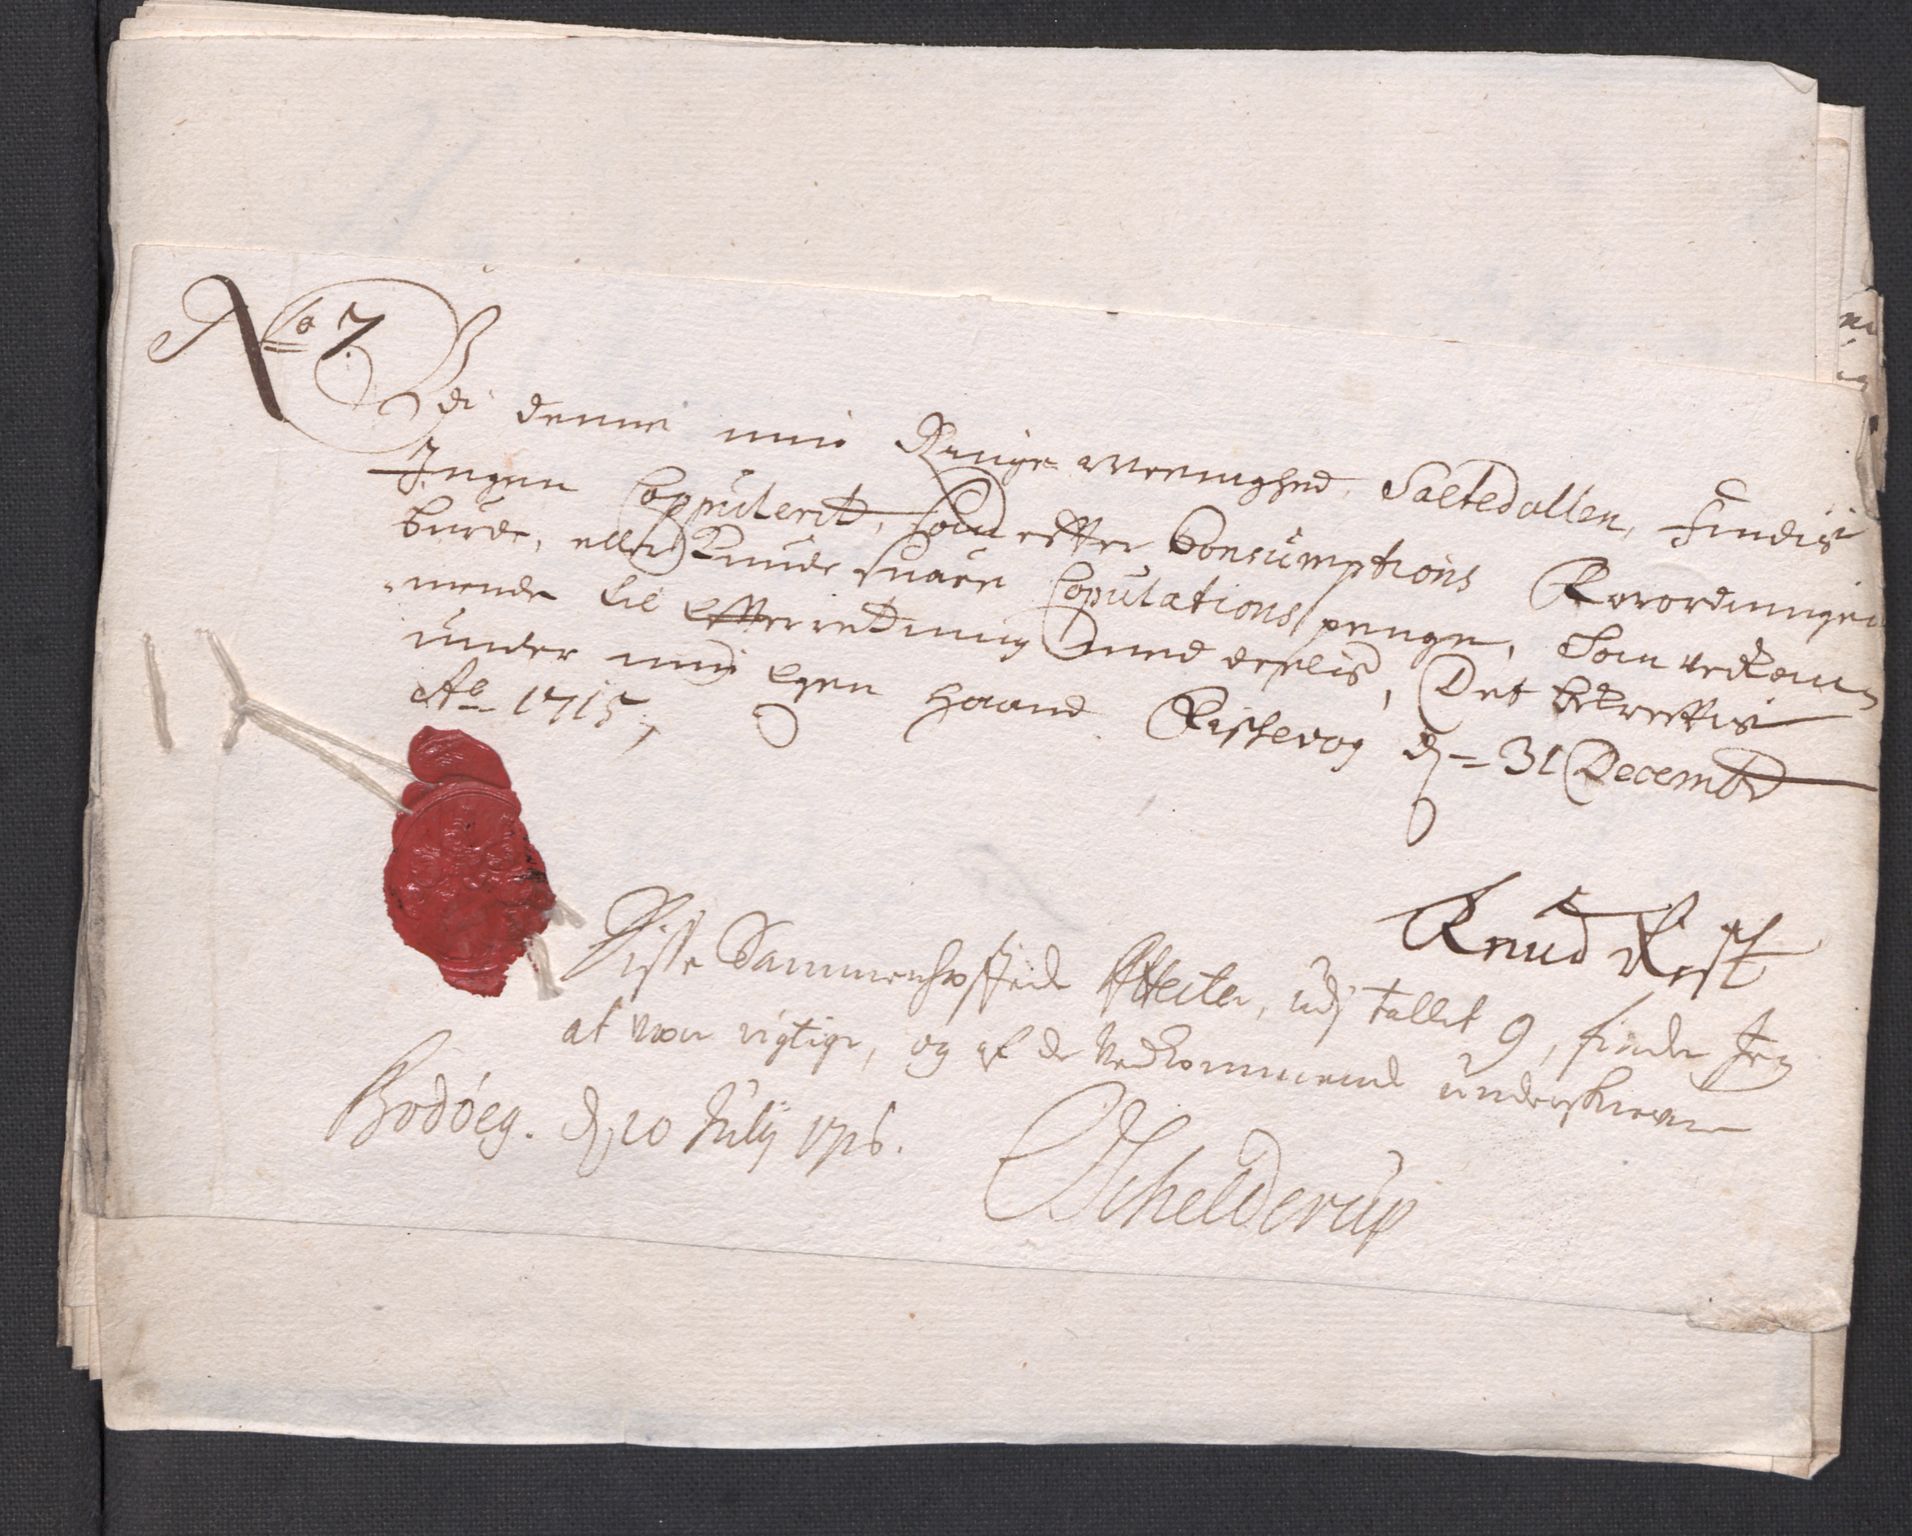 No 7.
Udi denne min Ringe Meenighed, Saltedallen, Findis
Ingen Coppulerit, som efter Consumptions Forordningen
burde, eller kunde svare Copulations penge, Som vedkom-
mende til Efterretning med deelis, Det bekreftis
under min Egen Haand. Rischevog dn 31 Decembr
Ao 1715,
Knud Rest
Disse Sammenhæftede Attester, udj tallet 9, finder Jeg
at være rigtige, og af de Vedkommende underskrevne
Bodöeg. dn 20 Julij 1716.
Schelderup